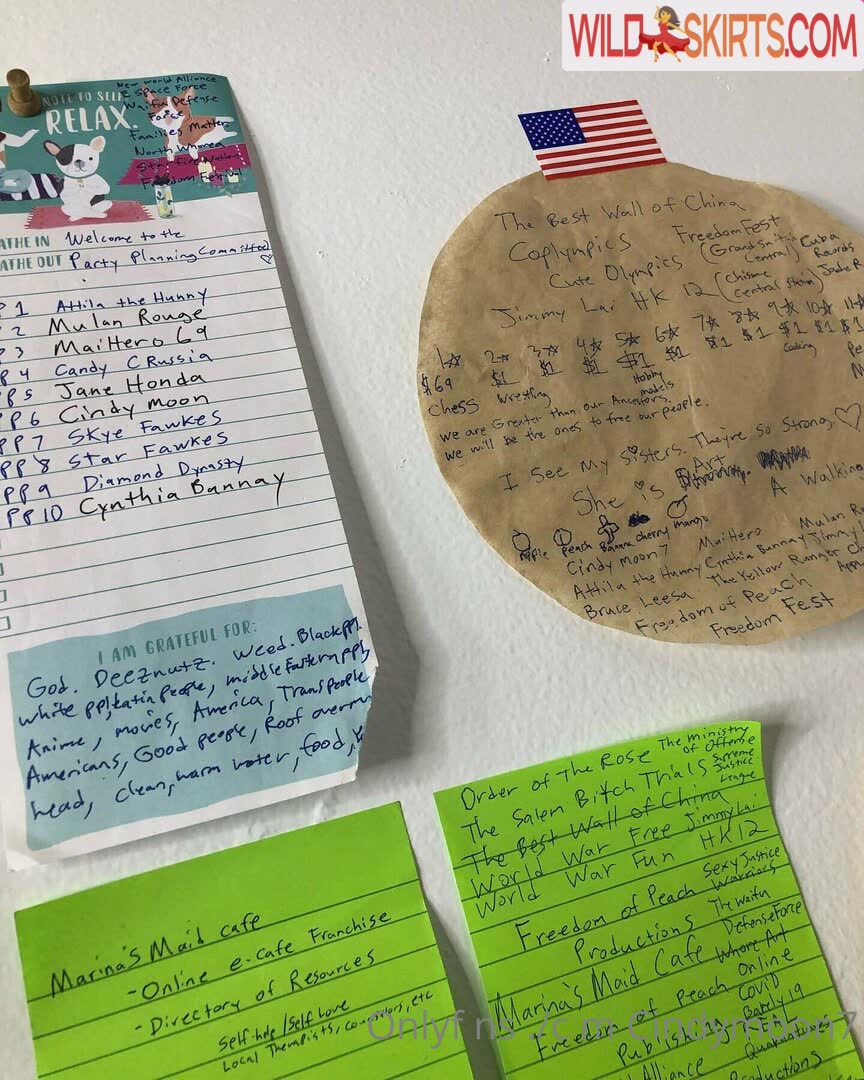 WILD SKIRTS.COM
NOTE TO SELF:
RELAX.
New World Alliance
& Space Force
Waifu Defense
Force
Families Matter
North Whorea
Star Fire Nation
Freedom Festival
ATHE IN Welcome to the
ATHE OUT Party Planning Committee
PP 1 Attila the Hunny
PP 2 Mulan Rouge
PP 3 MaiHero 69
PP 4 Candy C Russia
PP 5 Jane Honda
PP 6 Cindy moon
PP 7 Skye Fawkes
PP 8 Star Fawkes
PP 9 Diamond Dynasty
PP 10 Cynthia Bannay
I AM GRATEFUL FOR:
God. Deeznutz. Weed. Black ppl.
white ppl, Latin people, middle Eastern ppl,
Anime, movies, America, Trans people
Americans, Good people, Roof over my
head, clean, warm water, food,
The Best Wall of China
Coplympics FreedomFest
Cute Olympics (Grandsnitch Central) Cuba Records
Jimmy Lai HK 12 (chisme central station) Jade R
1☆ 2☆ 3☆ 4☆ 5☆ 6☆ 7☆ 8☆ 9☆ 10☆ 11☆
$69 $1 $1 $1 $1 $1 $1 $1 $1 $1 $1
Chess Wrestling Hobby models Cooking
we are Greater than our Ancestors.
we will be the ones to free our people.
I See My sisters. They're so Strong.
She is Strong. Art
A Walking
Apple Peach Banana cherry mango
Cindy moon 7 MaiHero Mulan Ro
Attila the Hunny Cynthia Bannay Jimmy
Bruce Leesa The Yellow Ranger
Freedom of Peach
Freedom Fest
Order of The Rose The ministry of Offense
The Salem Bitch Trials Supreme Justice League
The Best Wall of China
World War Free Jimmy Lai
World War Fun HK12
Freedom of Peach Sexy Justice Warriors
Productions The Waifu
Marina's Maid Cafe Defense Force
Whore Art
Freedom of Peach Online
Publishing Covid
Barely 19
Alliance Quarantine
Productions
Marina's Maid cafe
- Online e-cafe Franchise
- Directory of Resources
Self-help/Self Love
Local Therapists, counselors, etc
Onlyf ns .c m Cindymoon7